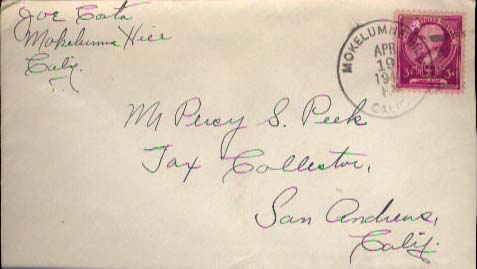 Joe Costa
Mokelumne Hill
Calif.
MOKELUMNE HILL
APR
19
CALIF.
3¢ 3¢
Mr Percy S. Peek
Tax Collector,
San Andreas,
Calif.